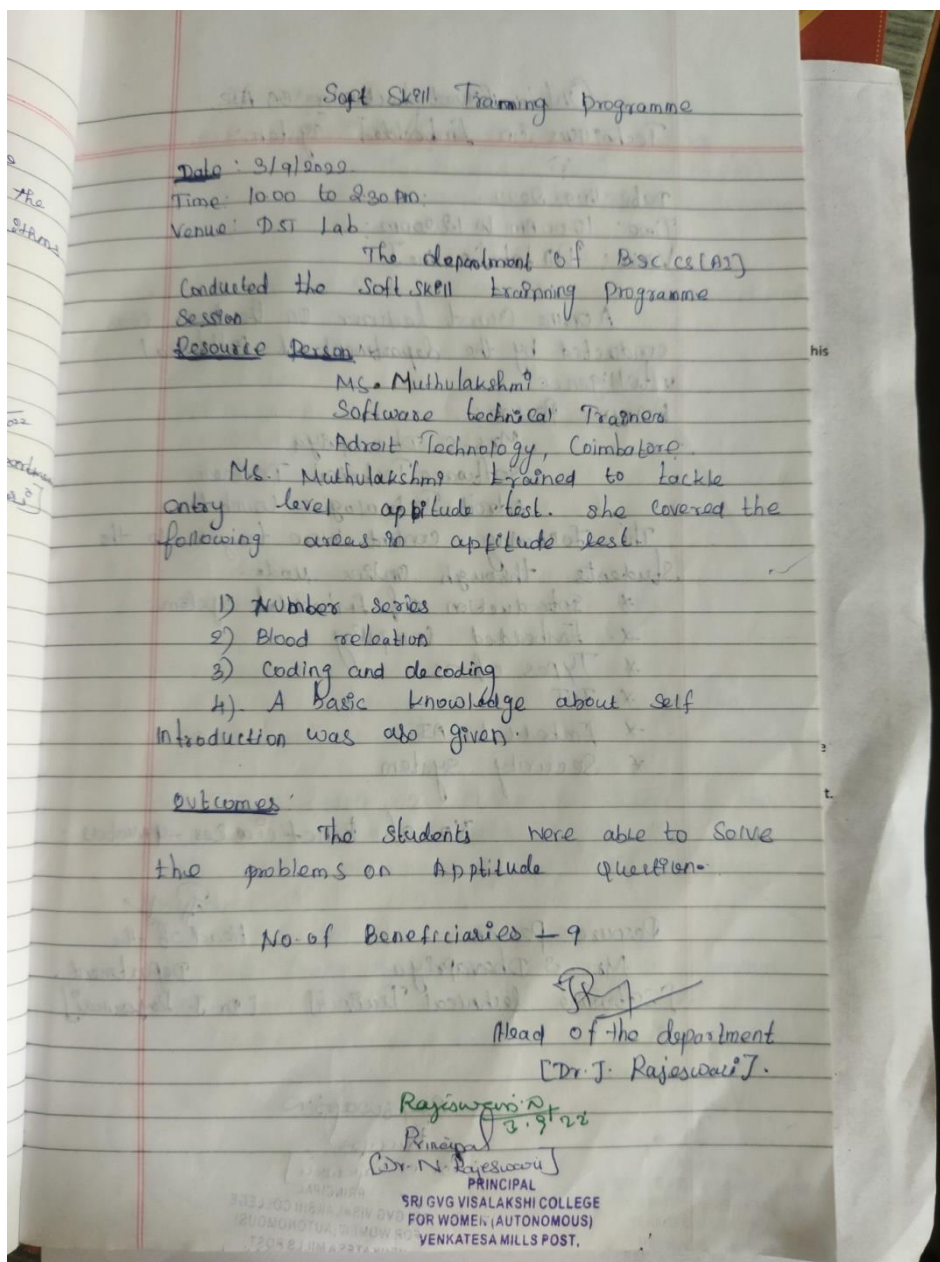 Soft Skill Training Programme
Date : 3/9/2022.
Time: 10.00 to 2.30 PM.
Venue: DST Lab
The department of BSC.CS[AI]
Conducted the Soft Skill trainning Programme
Session
Resource Person
MS. Muthulakshmi
Software technical Trainer
Adroit Technology, Coimbatore.
Ms. Muthulakshmi trained to tackle
entry level aptitude test. she covered the
following areas in aptitude test.
1) Number series
2) Blood releation
3) Coding and decoding
4). A basic knowledge about self
Introduction was also given.
Outcomes:
The students were able to Solve
the problems on Apptitude Question.
No. of Beneficiaries - 9
Head of the department
[Dr. J. Rajeswari].
Rajeswari. N
3.9.22
Principal
[Dr. N. Rajeswari]
PRINCIPAL
SRI GVG VISALAKSHI COLLEGE
FOR WOMEN (AUTONOMOUS)
VENKATESA MILLS POST,
the
his
t.